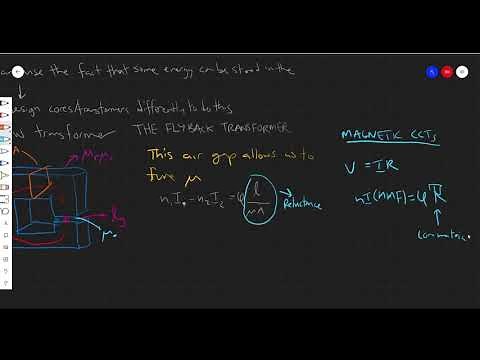 use the fact that some energy can be stored in the
design cores/transformers differently to do this
transformer THE FLYBACK TRANSFORMER
A
μrμo
This air gap allows us to
tune μ
n₁I₁ - n₂I₂ = φ l/μA → Reluctance
lg
μo
MAGNETIC CCTs
V = IR
nI(MMF) = φR